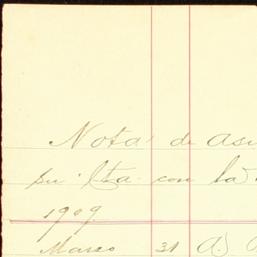 Nota de
su Cta. con la
1909
Marzo 31 A)